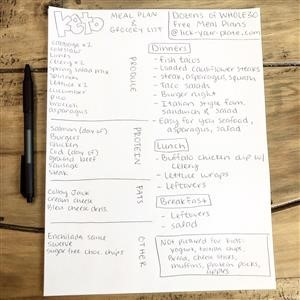 keto MEAL PLAN & GROCERY LIST
DOZENS OF WHOLE30
Free Meal Plans
@lick-your-plate.com
cabbage x2
limes
celery x2
spring salad mix
spinach
lettuce x2
cucumber
pico
broccoli
asparagus
PRODUCE
Salmon (day of)
Burgers
Chicken
Cod (day of)
ground beef
sausage
steak
PROTEIN
Colby Jack
cream cheese
Bleu cheese dress.
FATS
Enchilada sauce
Swerve
sugar free choc. chips
OTHER
Dinners
- fish tacos
- Loaded cauliflower steaks
- steak, asparagus, squash
- Taco salads
- Burger night
- Italian style
& salmon
- Easy for you seafood,
asparagus, salad
Lunch
- Buffalo chicken dip w/
celery
- Lettuce wraps
- leftovers
Breakfast
- Leftovers
- salad
Not pictured for kids:
yogurt, chips,
Bread, cheese sticks,
muffins, protein packs,
apples